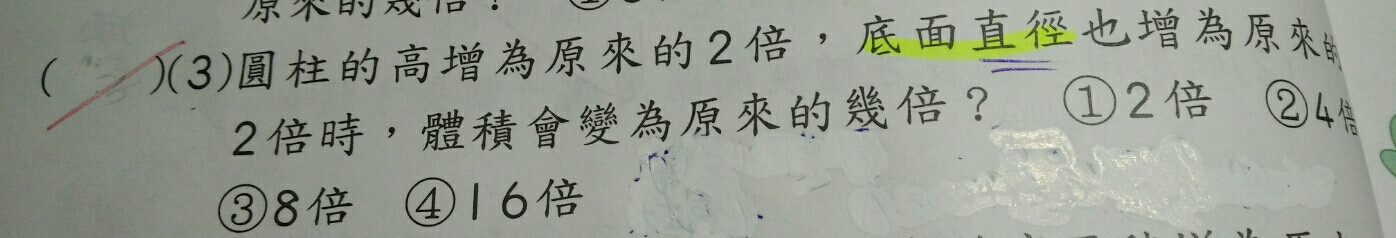 原來的幾倍？
( )(3)圓柱的高增為原來的2倍，底面直徑也增為原來的
2倍時，體積會變為原來的幾倍？ ①2倍 ②4倍
③8倍 ④16倍